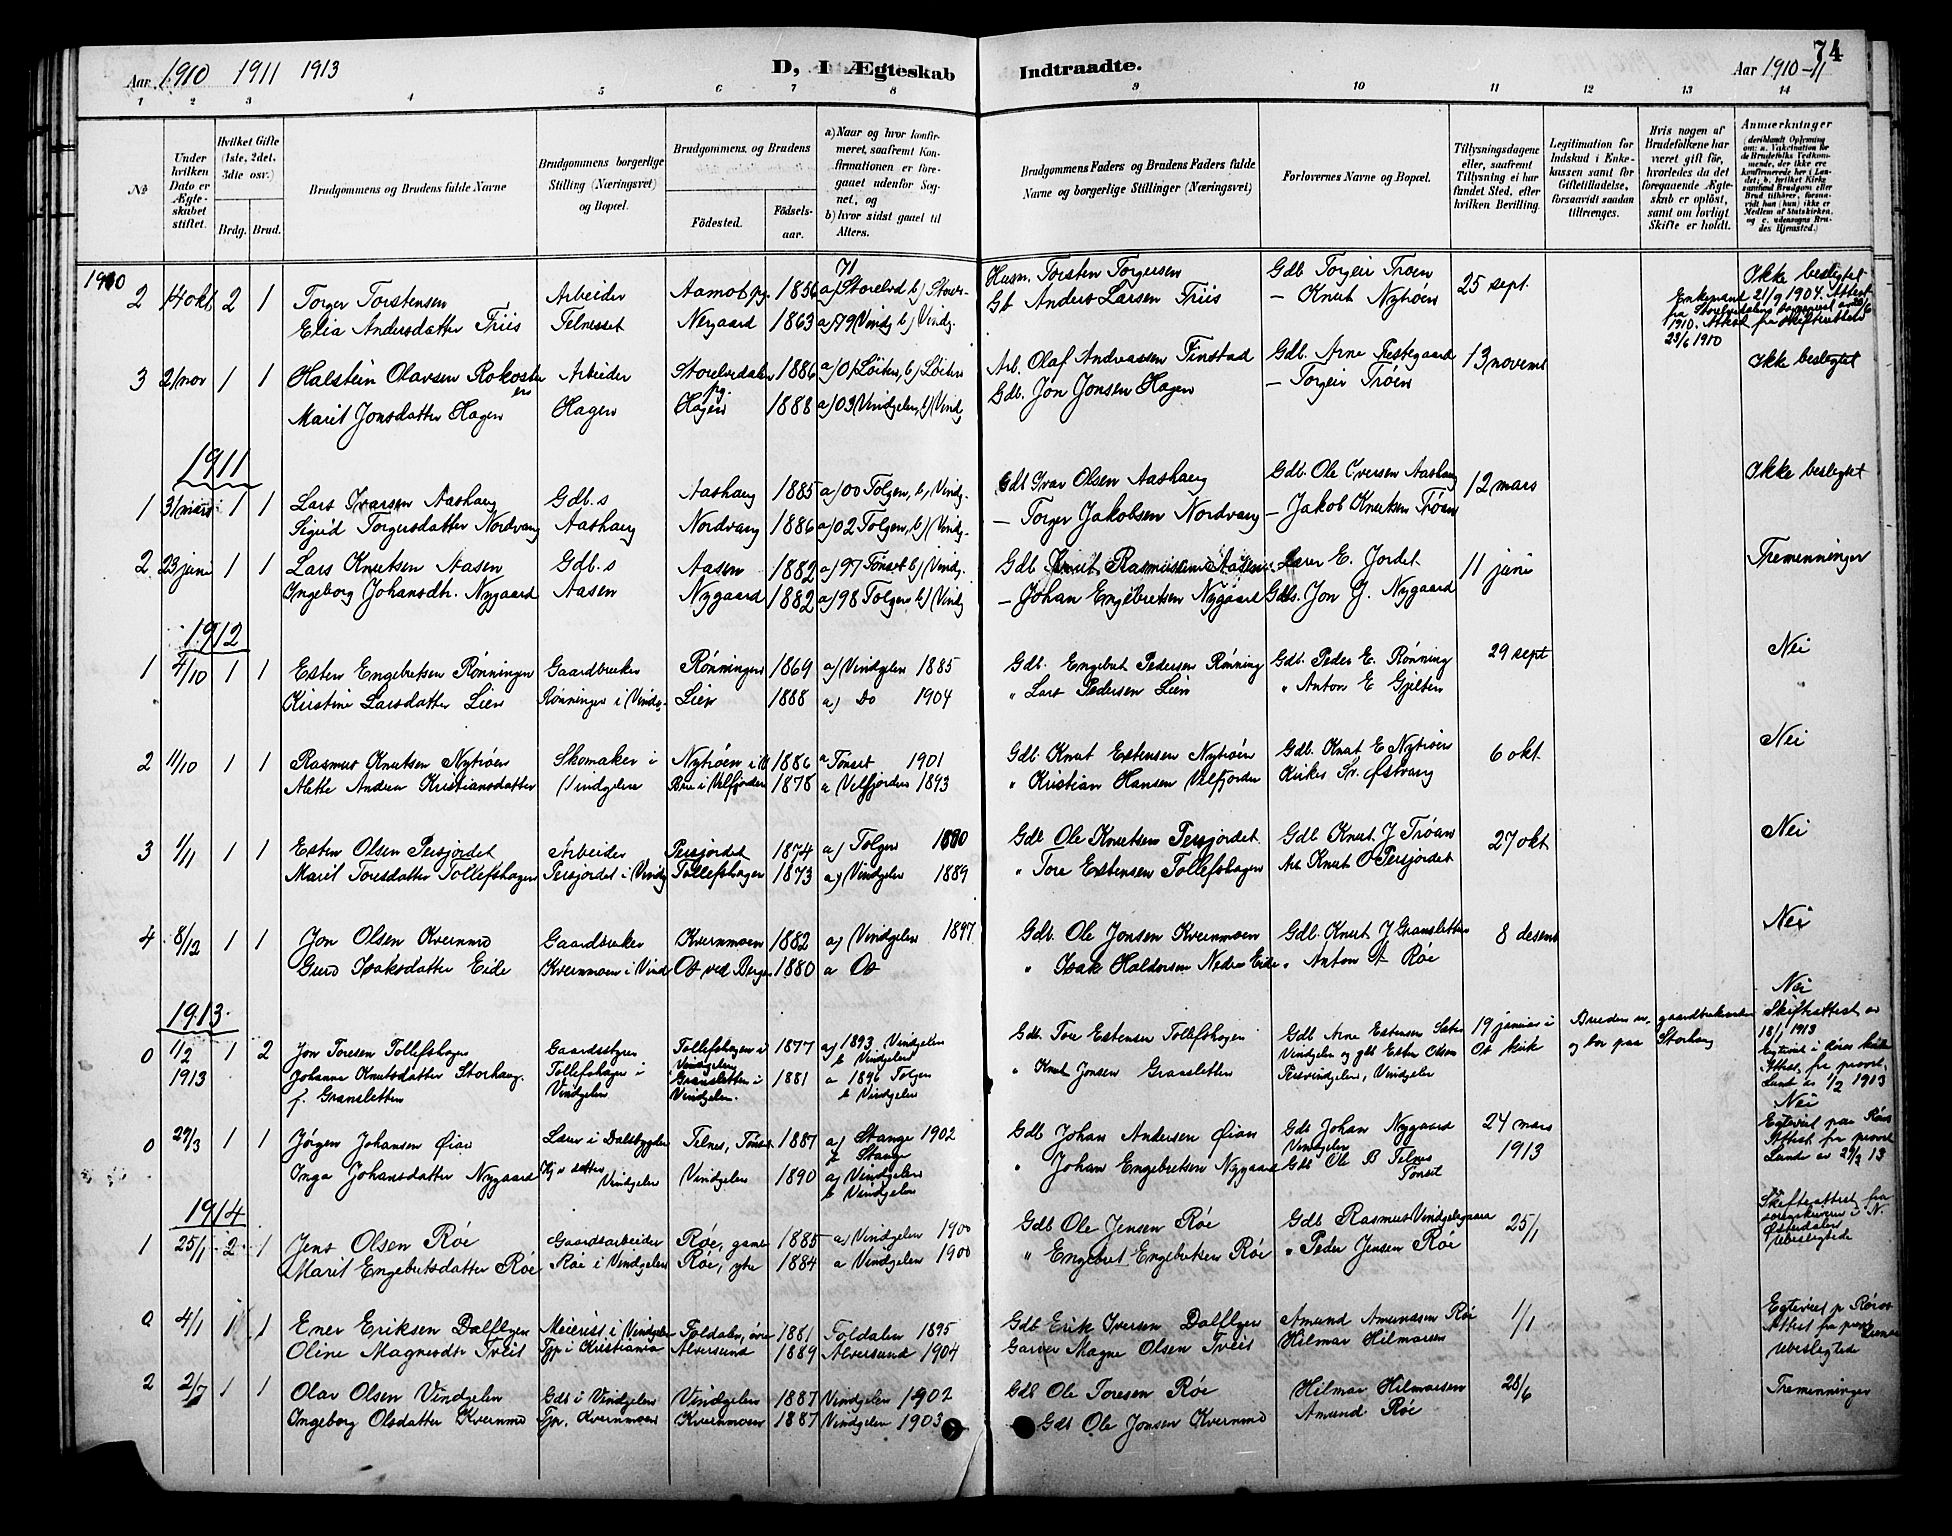 74
Aar 1910 1911 1913
D, I Ægteskab Indtraadte.
Aar 1910-11
1 2 3 4 5 6 7 8 9 10 11 12 13 14
No
Under hvilken Dato er Ægteskabet stiftet.
Hvilket Gifte (1ste, 2det, 3die osv.)
Brdg. Brud.
Brudgommens og Brudens fulde Navne
Brudgommens borgerlige Stilling (Næringsvei) og Bopæl.
Brudgommens og Brudens
Födested. Födselsaar.
a) Naar og hvor konfirmeret, saafremt Konfirmationen er foregaaet udenfor Sognet, og
b) hvor sidst gaaet til Alters.
Brudgommens Faders og Brudens Faders fulde Navne og borgerlige Stillinger (Næringsvei)
Forlovernes Navne og Bopæl.
Tillysningsdagene eller, saafremt Tillysning ei har fundet Sted, efter hvilken Bevilling.
Legitimation for Indskud i Enkekassen samt for Giftetilladelse, forsaavidt saadan tiltrænges.
Hvis nogen af Brudefolkene har været gift för, hvorledes da det foregaaende Ægteskab er oplöst, samt om lovligt Skifte er holdt.
Anmærkninger
1910
2 14 okt 2 1 Torger Torstensen Arbeider Aamot pg. 1856 a) 71 Storelvd b) Storelv. Husm. Torsten Torgersen Gdb Torgeir Trøen 25 sept. Ikke beslegtet
Enkemand 21/9 1904. Attest fra Storelvedalens
1910. Attest fra skifteretten 23/6 1910
Elia Andersdatter Friis Telneset Nergaard 1863 a) 79 Vindg b) Vindg. Gb Anders Larsen Friis – Knut Nytrøen
3 21 nov 1 1 Halstein Olavsen Rokosteren Arbeider Storelvedalen pg. 1886 a) 01 Løiten, b) Løiten Arb. Olaf Andreassen Finstad Gdb. Arne Gestegaard 13 novemb Ikke beslegtet
Marit Jonsdatter Hagen Hagen Hagen 1888 a) 03 Vindgelen, b) Vind. Gdb. Jon Jonsen Hagen – Torgeir Trøen
1911
1 31 mars 1 1 Lars Ivarsen Aashaug Gdb.s Aashaug 1885 a) 00 Tolgen, b) Vindg. Gdb Ivar Olsen Aashaug Gdb. Ole Iversen Aashaug 12 mars Ikke beslegtet
Sigrid Torgersdatter Nordvang Aashaug Nordvang 1886 a) 02 Tolgen, b) Vindg. – Torger Jakobsen Nordvang – Jakob Knutsen Trøan
2 23 juni 1 1 Lars Knutsen Aasen Gdb.s Aasen 1882 a) 97 Tønset b) Vindg. Gdb Knut Rasmussen Aasen Lærer E. Jordet 11 juni Tremenninger
Ingeborg Johansdtr. Nygaard Aasen Nygaard 1882 a) 98 Tolgen, b) Vindg – Johan Engebretsen Nygaard Gdb. Jon G. Nygaard
1912
1 4/10 1 1 Esten Engebretsen Rønningen Gaardbruker Rønningen 1869 a) Vindgelen 1885 Gdb. Engebret Pedersen Rønning Gdb. Peder E. Rønning 29 sept Nei
Kirstine Larsdatter Lien Rønningen i Vindg. Lien 1888 a) Do 1904 " Lars Pedersen Lien " Anton E Gjelten
2 11/10 1 1 Rasmus Knutsen Nytrøen Skomaker i Nytrøen i V 1886 a Tønset 1901 Gdb. Knut Estensen Nytrøen Gdb. Knut E Nytrøen 6 okt Nei
Alette Andrea Kristiansdatter Vindgelen Bøe i Velfjorden 1878 a Velfjorden 1893 " Kristian Hansen Velfjorden Kirkes Sr. Østvang
3 1/11 1 1 Esten Olsen Persjordet Arbeider Persjordet 1874 a) Tolgen 1890 Gdb Ole Knutsen Persjordet Gdb Knut J Trøan 27 okt Nei
Marit Toresdatter Tollefshagen Persjordet i Vindg Tollefshagen 1873 a) Vindgelen 1889 " Tore Estensen Tollefshagen Arb Knut O Persjordet
4 8/12 1 1 Jon Olsen Kvernmo Gaardbruker Kvernmoen 1882 a) Vindgelen 1897 Gdb. Ole Jonsen Kvernmoen Gdb. Knut J Gransletten 8 desemb Nei
Guro Isaksdatter Eide Kvernmoen i Vind Os ved Bergen 1880 a Os " Isak Haldorsen Nedre Eide " Anton A Røe
1913
0 1/2 1913 1 2 Jon Toresen Tollefshagen Gaardsstyrer Tollefshagen i Vindgelen 1877 a) 1893 Vindgelen b Vindgelen Gdb. Tore Estensen Tollefshagen Gdb Arne Estensen Sæter Vindgelen og gdb Esten Olsen Persvindgelen, Vindgelen 19 januar i Os kirk Bruden er gaardbrukerske og bor paa Storhaug
Nei
Skifteattest av 18/1 1913
Egteviet i Røros kirke
Attest fra provst Lunde av 1/2 1913
Johanna Knutsdatter Storhaug f. Gransletten Tollefshagen i Vindgelen Gransletten i Vindgelen. 1881 a 1896 Tolgen b Vindgelen " Knut Jonsen Gransletten
0 29/3 1 1 Jørgen Johansen Øian Lærer i Dalsbygden Telnes, Tønset 1887 a) Stange 1902 b Stange Gdb Johan Andersen Øian Gdb Johan Nygaard Vindgelen 24 mars 1913
Nei
Egteviet paa Røros
Attest fra provst Lunde av 29/3 13
Inga Johansdatter Nygaard Hj v datter Vindgelen Vindgelen 1890 a) Vindgelen b Vindgelen " Johan Engebretsen Nygaard Gdb Ole B Telnes Tønset
1914
1 25/1 2 1 Jens Olsen Røe Gaardsarbeider Røe, gamle 1885 a) Vindgelen 1900 Gdb Ole Jensen Røe Gdb Rasmus Vindgelsgaard 25/1
Skifteattest fra sorenskriveren i N. Østerdalen
Ubeslegtede
Marit Engebretsdatter Røe Røe i Vindgelen Røe, ytre 1884 a Vindgelen 1900 " Engebret Engebretsen Røe " Peder Jensen Røe
0 4/1 1 1 Ener Eriksen Dalflyen Meierist i Vindgelen Foldalen, øvre 1881 Foldalen 1895 Gdb Erik Iversen Dalflyen Amund Amundsen Røe 1/1
Egteviet p Røros
Attest fra provst Lunde
Ubeslegtede
Oline Magnesdtr Tveit Tjp i Kristiania Alversund 1889 Alversund 1904 Gaardbr Magne Olsen Tveit Hilmar Hilmarsen
2 2/7 1 1 Olav Olsen Vindgelen Gdb i Vindgelen Vindgelen 1887 Vindgelen 1902 Gdb Ole Toresen Røe Hilmar Hilmarsen 28/6 Tremenninger
Ingeborg Olsdatter Kvernmo Tjp. Kvernmoen Kvernmoen 1887 Vindgelen 1903 Gdb Ole Jonsen Kvernmo Amund Røe